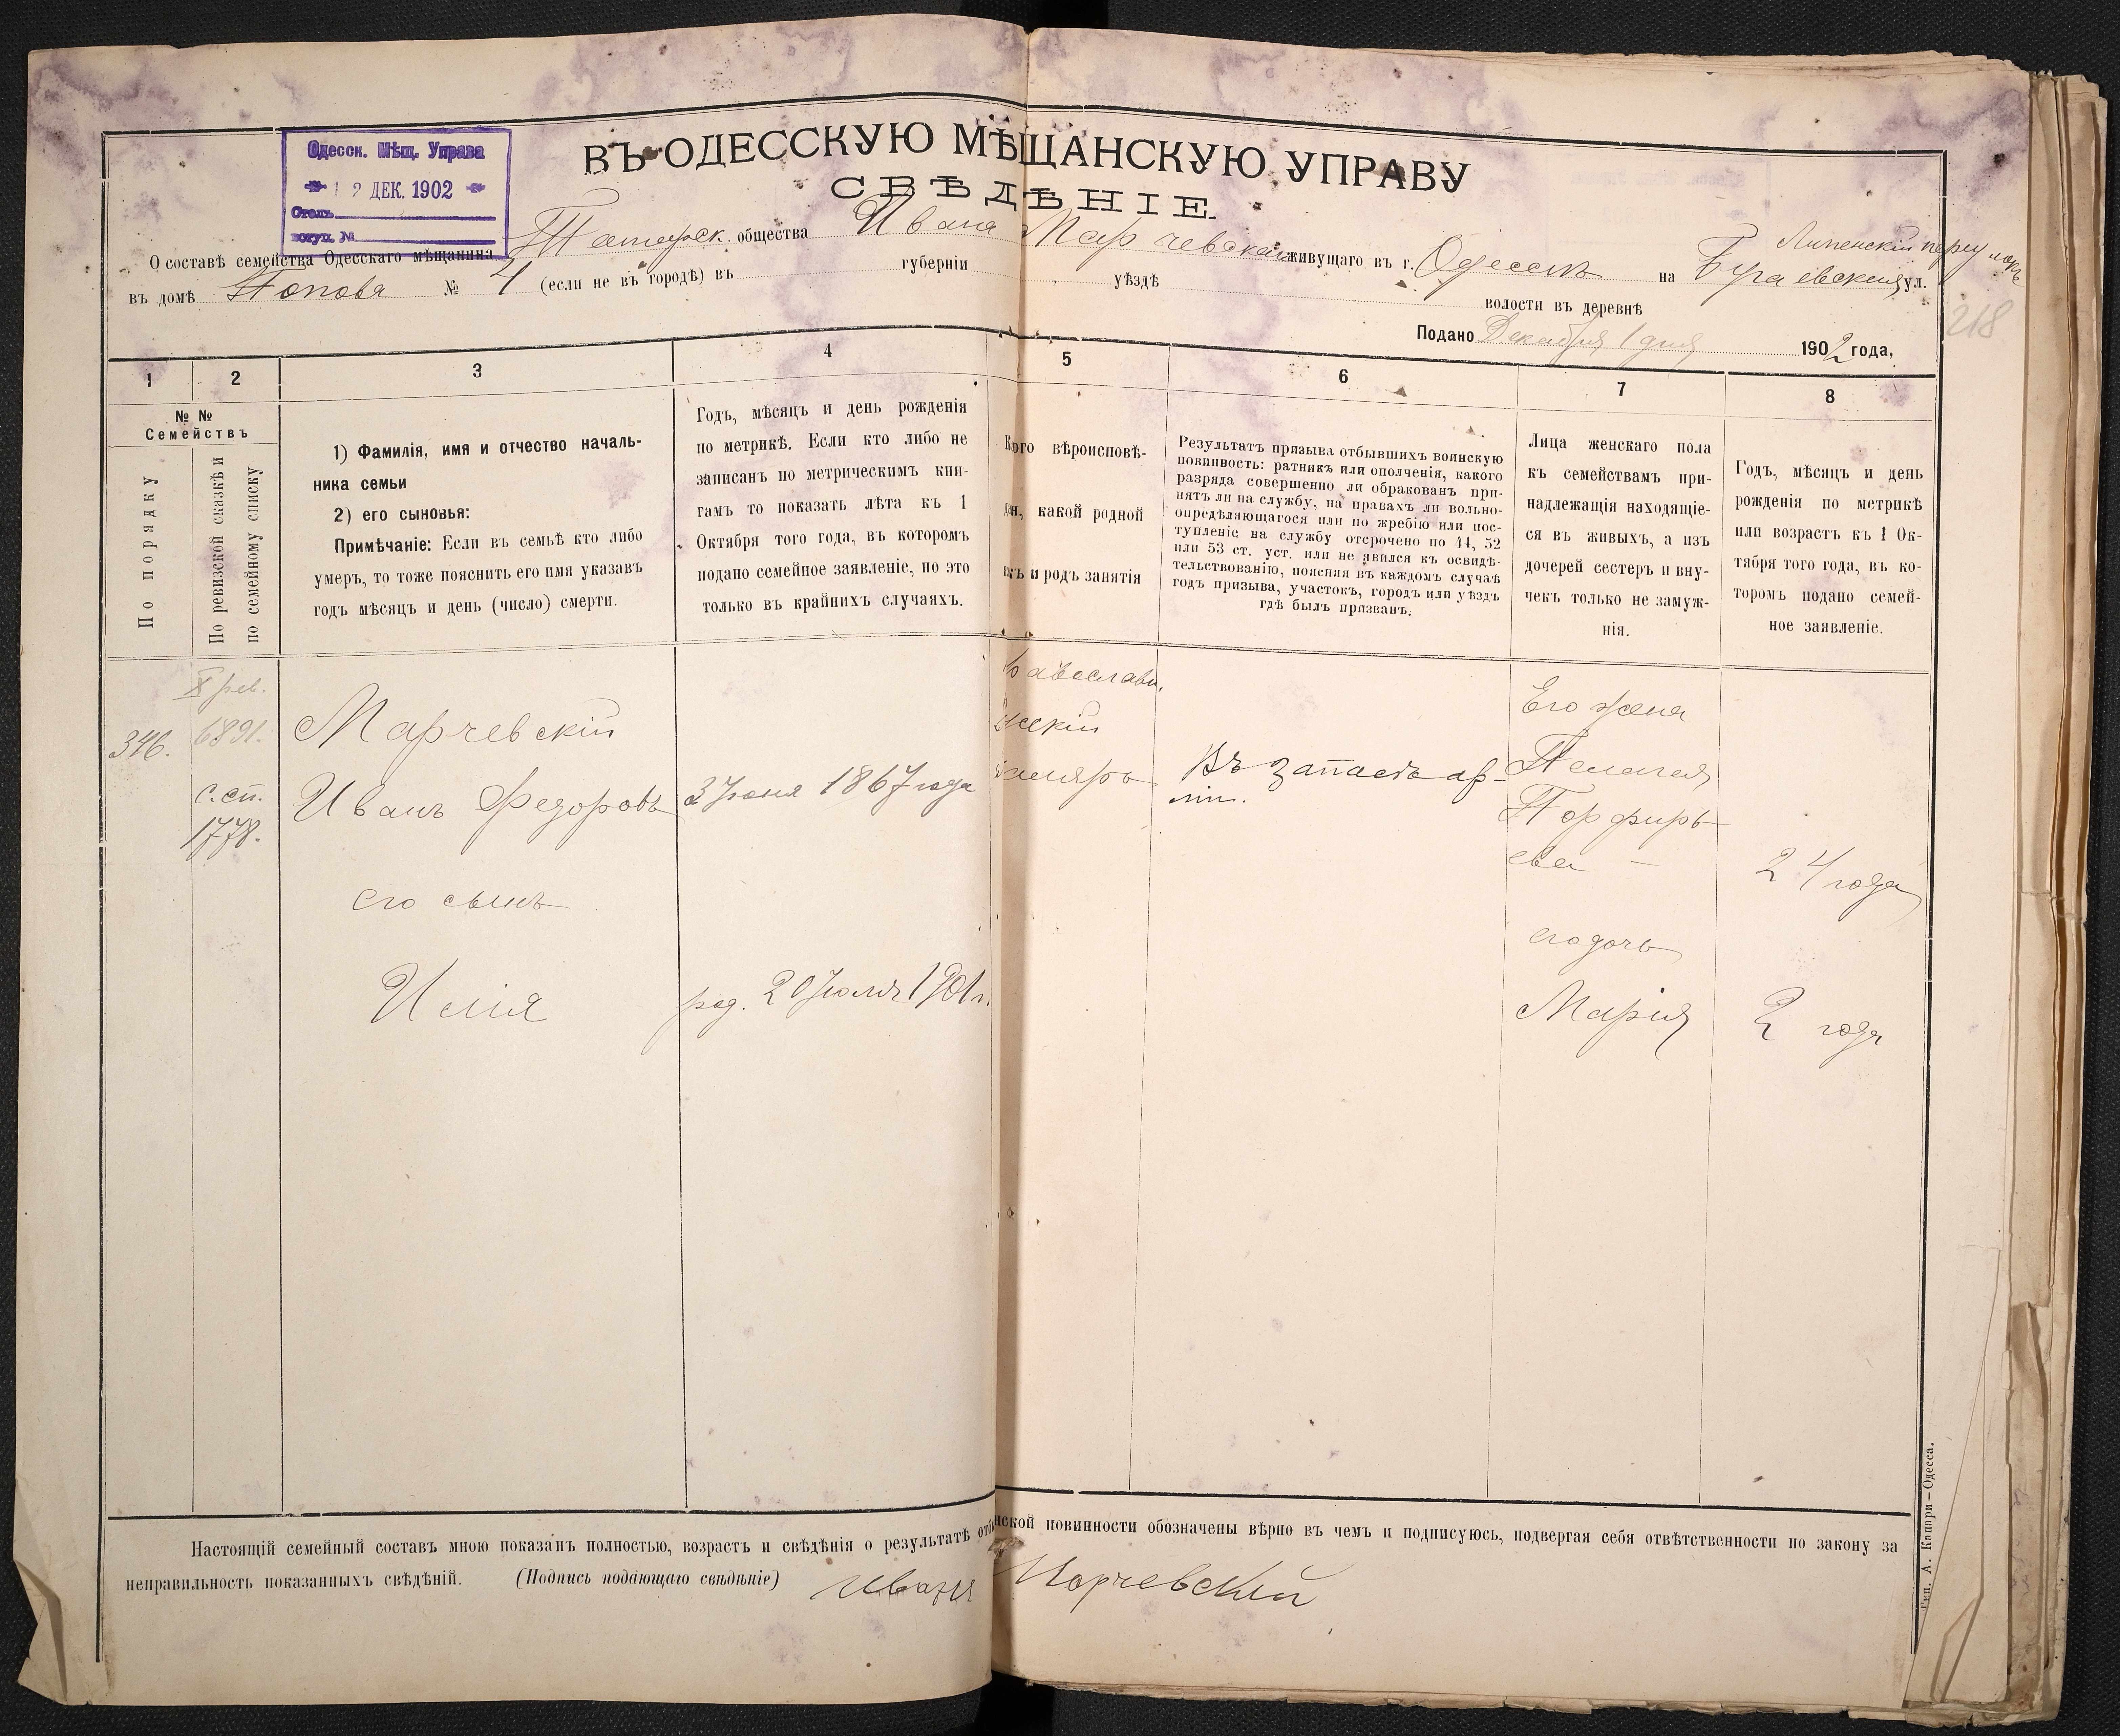 ВЪ ОДЕССКУЮ МѢЩАНСКУЮ УПРАВУ
СВѢДѢНІЕ.
Одесск. Мѣщ. Управа
2 ДЕК. 1902
Столъ
вступ. №
О составѣ семейства Одесскаго мѣщанина общества Ивана Марчевскаго живущаго въ г. Одессѣ на Бугаевской ул.
Липенскій переулокъ
въ домѣ Попова № 4 (если не въ городѣ) въ губерніи уѣздѣ волости въ деревнѣ
218
Подано Декабря 1 дня 1902 года,
1
2
3
4
5
6
7
8
№ №
Семействъ
По порядку
По ревизской сказкѣ и
по семейному списку
1) Фамилія, имя и отчество началь-
ника семьи
2) его сыновья:
Примѣчаніе: Если въ семьѣ кто либо
умеръ, то тоже пояснить его имя указавъ
годъ мѣсяцъ и день (число) смерти.
Годъ, мѣсяцъ и день рожденія
по метрикѣ. Если кто либо не
записанъ по метрическимъ кни-
гамъ то показать лѣта къ 1
Октября того года, въ которомъ
подано семейное заявленіе, но это
только въ крайнихъ случаяхъ.
вѣроисповѣ-
какой родной
и родъ занятія
Результатъ призыва отбывшихъ воинскую
повинность: ратникъ или ополченія, какого
разряда совершенно ли обракованъ при-
нятъ ли на службу, на правахъ ли вольно-
опредѣляющагося или по жребію или пос-
тупленіе на службу отсрочено по 44, 52
или 53 ст. уст. или не явился къ освидѣ-
тельствованію, поясняя въ каждомъ случаѣ
годъ призыва, участокъ, городъ или уѣздъ
гдѣ былъ призванъ.
Лица женскаго пола
къ семействамъ при-
надлежащія находящіе-
ся въ живыхъ, а изъ
дочерей сестеръ и вну-
чекъ только не замуж-
нія.
Годъ, мѣсяцъ и день
рожденія по метрикѣ
или возрастъ къ 1 Ок-
тября того года, въ ко-
торомъ подано семей-
ное заявленіе.
346.
X рев.
6891.
с. сп.
1778.
Марчевскій
Иванъ Федоровъ
его сынъ
Илія
3 Іюня 1867 года
род. 20 Іюля 1901 г.
Православн.
Въ запасѣ ар-
міи.
Его жена
Пелагея
Порфирь-
ева —
24 года
его дочь
Марія
2 года
Настоящій семейный составъ мною показанъ полностью, возрастъ и свѣдѣнія о результатѣ повинности обозначены вѣрно въ чемъ и подписуюсь, подвергая себя отвѣтственности по закону за
неправильность показанныхъ свѣдѣній. (Подпись подающаго свѣдѣніе) Иванъ Марчевский
Тип. А. Капари—Одесса.